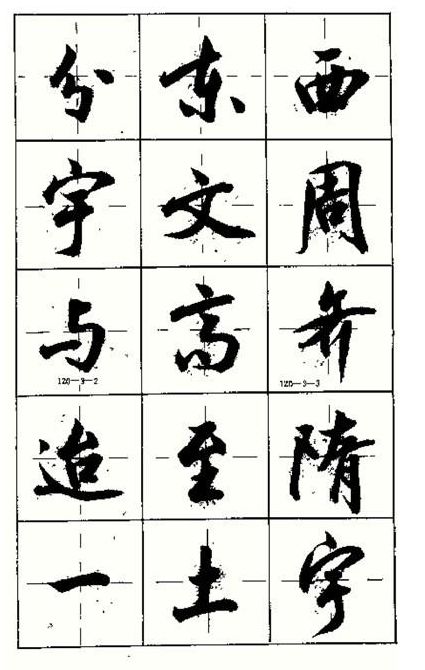 分东西
宇文周
与高齐
120-3-2
120-3-3
迨至隋
一土宇